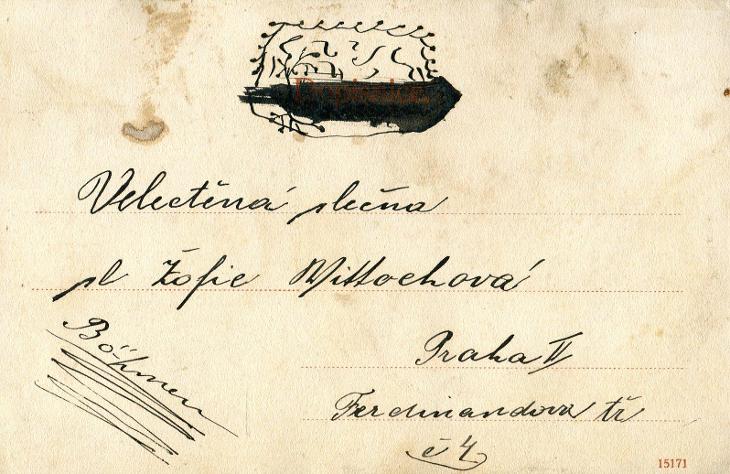 Velectěná slečna
sl Žofie Wittochová
Böhmen
Praha II
Ferdinandova tř
č 4
15171